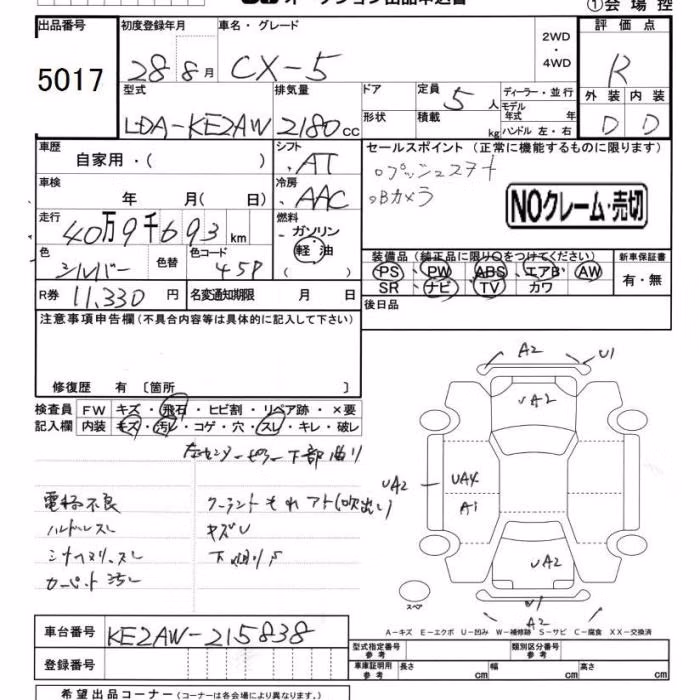 オークション出品申込書
①会場控
出品番号 初度登録年月 車名・グレード 2WD・4WD 評価点
5017 28 8月 CX-5 R
型式 排気量 ドア 定員 5人 ディーラー・並行
外装 内装
モデル年式 年
LDA-KE2AW 2180cc 形状 積載 kg ハンドル 左・右 D D
車歴 自家用・( ) シフト AT セールスポイント (正常に機能するものに限ります)
プッシュスタート
車検 年 月( 日) 冷房 AAC Bカメラ
NOクレーム・売切
走行 40万9千693km 燃料 ガソリン 軽油 ( )
色 シルバー 色替 色コード 45P
装備品 (純正品に限り○をつけてください) 新車保証書
PS・PW・ABS・エアB・AW
SR・ナビ・TV・カワ 有・無
R券 11,330円 名変通知期限 月 日
後日品
注意事項申告欄(不具合内容等は具体的に記入して下さい)
修復歴 有〔箇所 〕
検査員記入欄 FW キズ・飛石・ヒビ割・リペア跡・×要
内装 キズ・汚レ・コゲ・穴・スレ・キレ・破レ
左センターピラー下部曲り
電格不良 クーラントもれアト(吹出し)
ハンドルスレ キズU
シートスレ
カーペット汚レ
A2 U1
UA2
UA2 UA4
A1
UA2
スペア
U1
A2
A-キズ E-エクボ U-凹み W-補修跡 S-サビ C-腐食 XX-交換済
車台番号 KE2AW-215838
型式指定番号 参考 類別区分番号 参考
登録番号
車庫証明用 参考 長さ cm 幅 cm 高さ cm
希望出品コーナー(コーナーは各会場により異なります。)